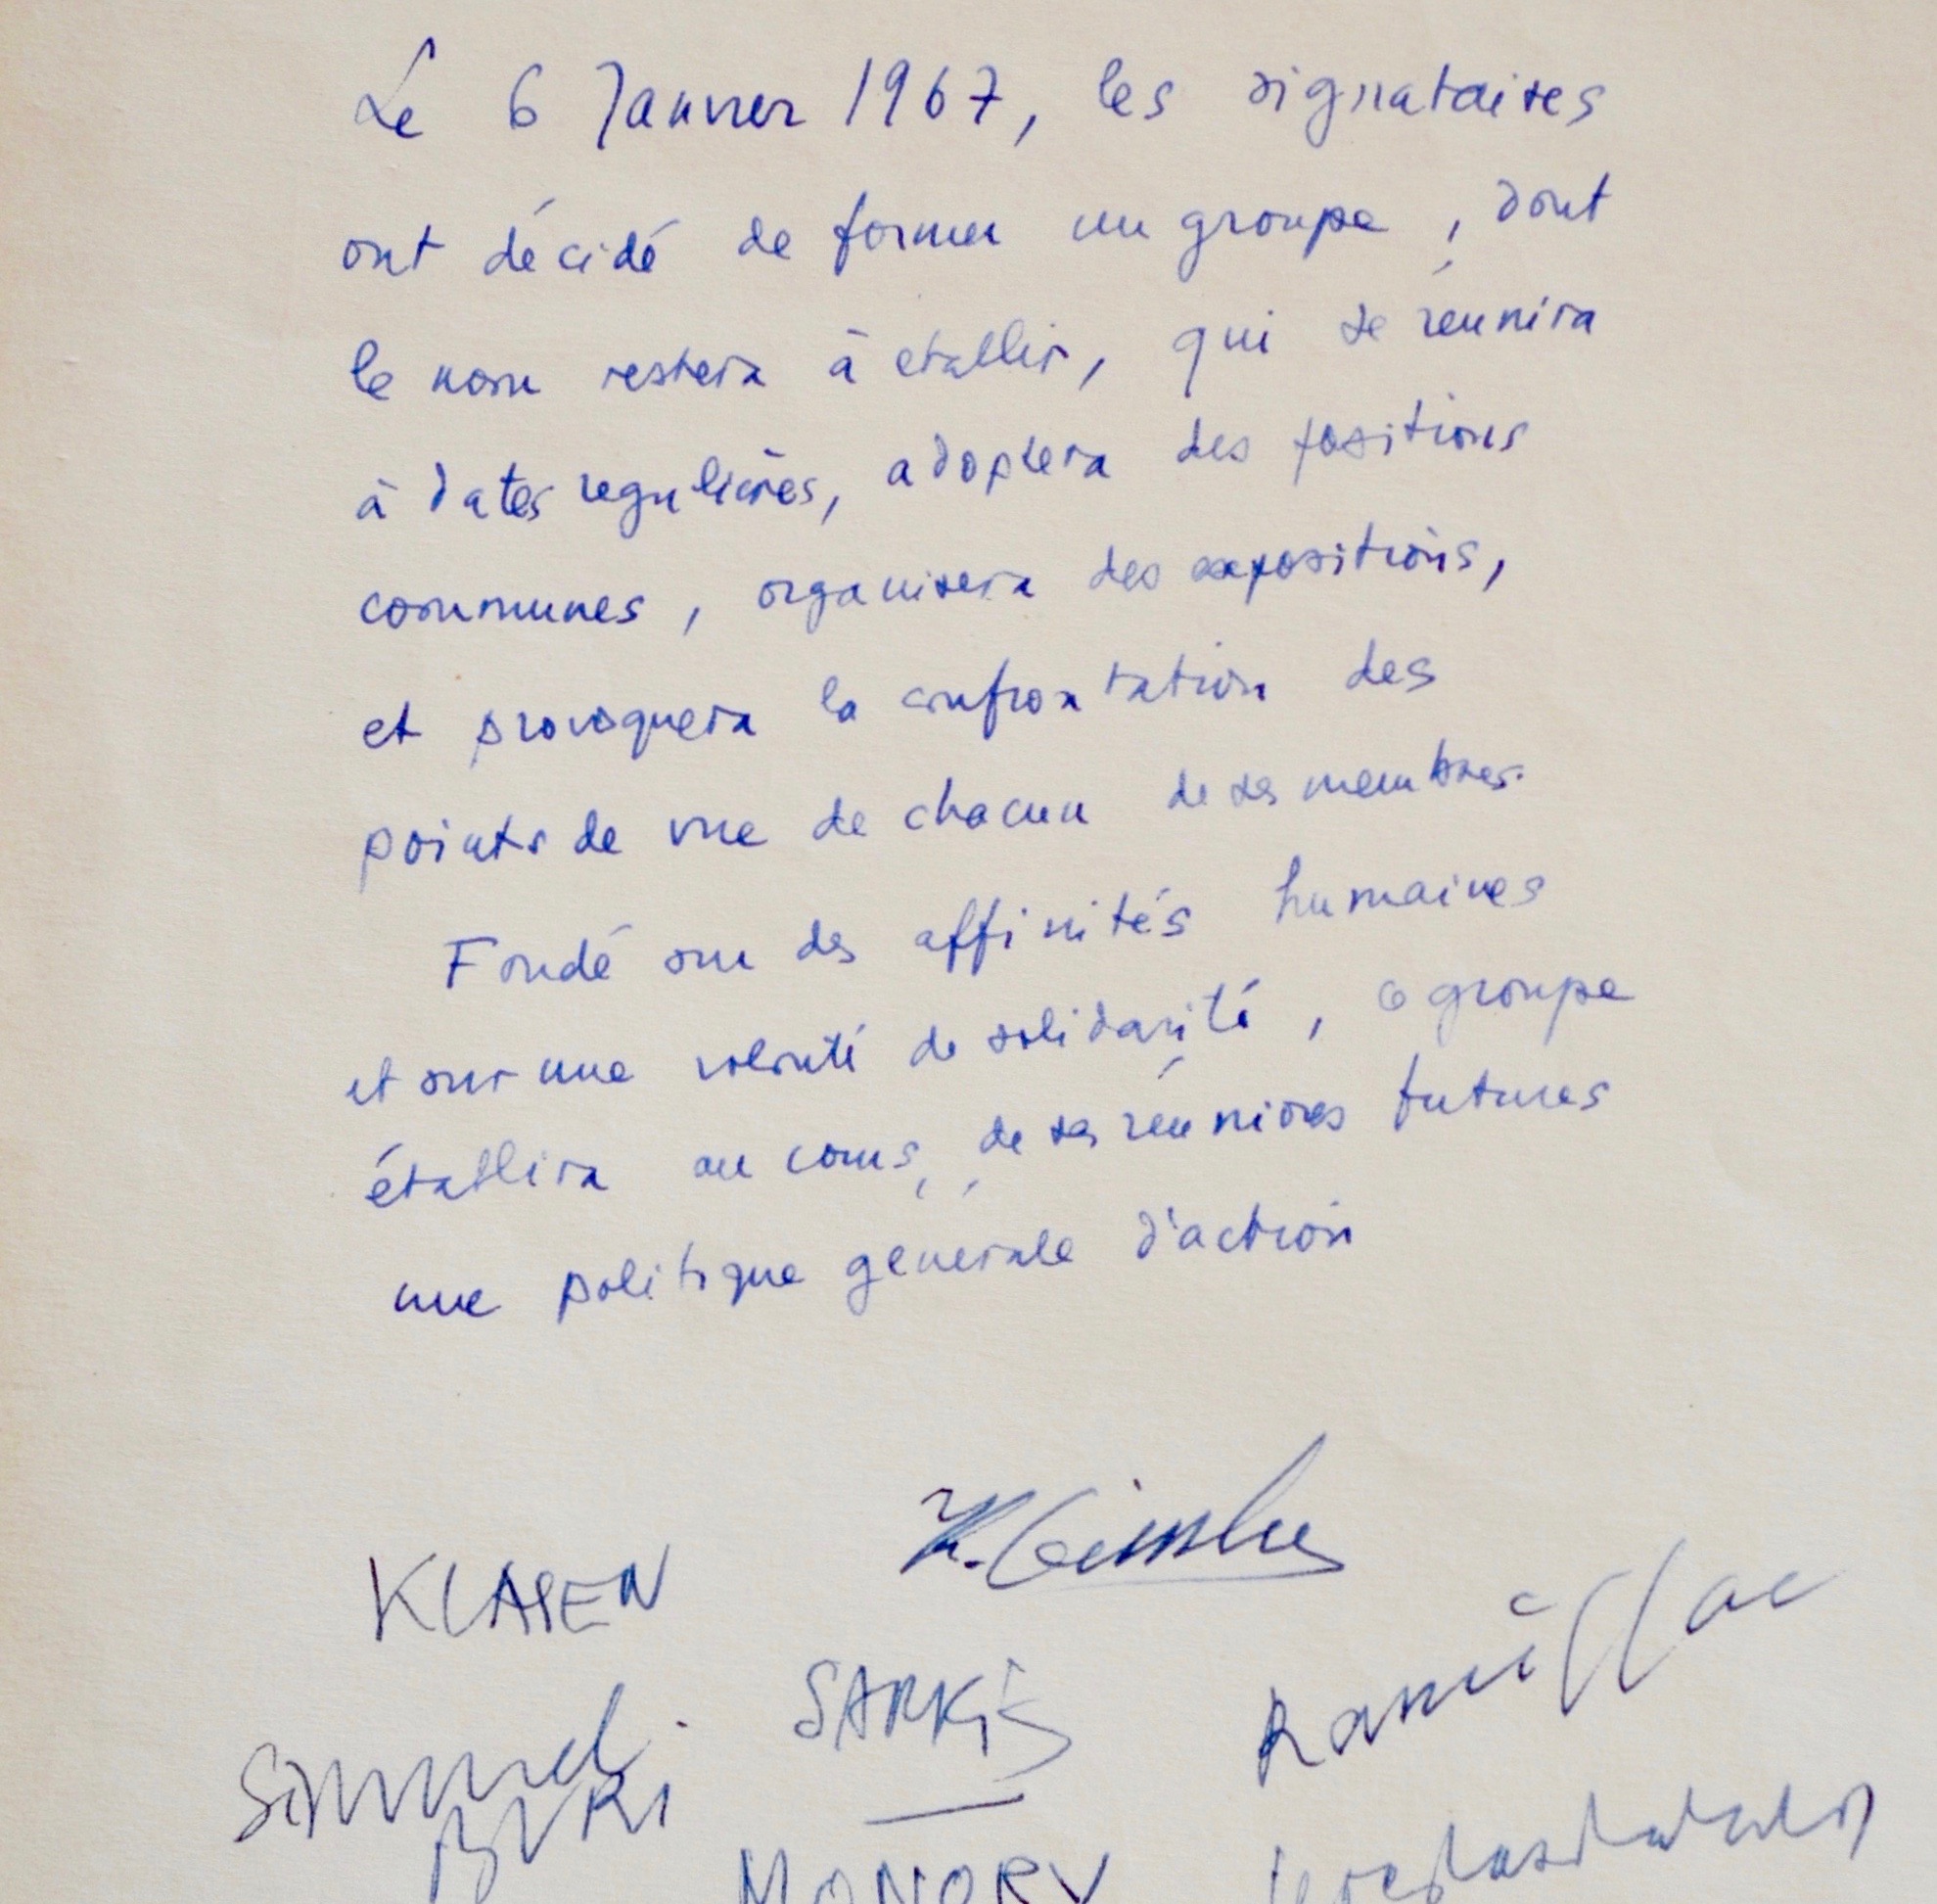 Le 6 Janvier 1967, les signataires
ont décidé de former un groupe, dont
le nom restera à etablir, qui se réunira
à dates regulières, adoptera des positions
communes, organisera des expositions,
et provoquera la confrontation des
points de vue de chacun de ses membres.
Fondé sur des affinités humaines
et sur une volonté de solidarité, ce groupe
établira au cours, de ses réunions futures
une politique générale d'action
KLASEN
SARKIS
BURI
MONORY